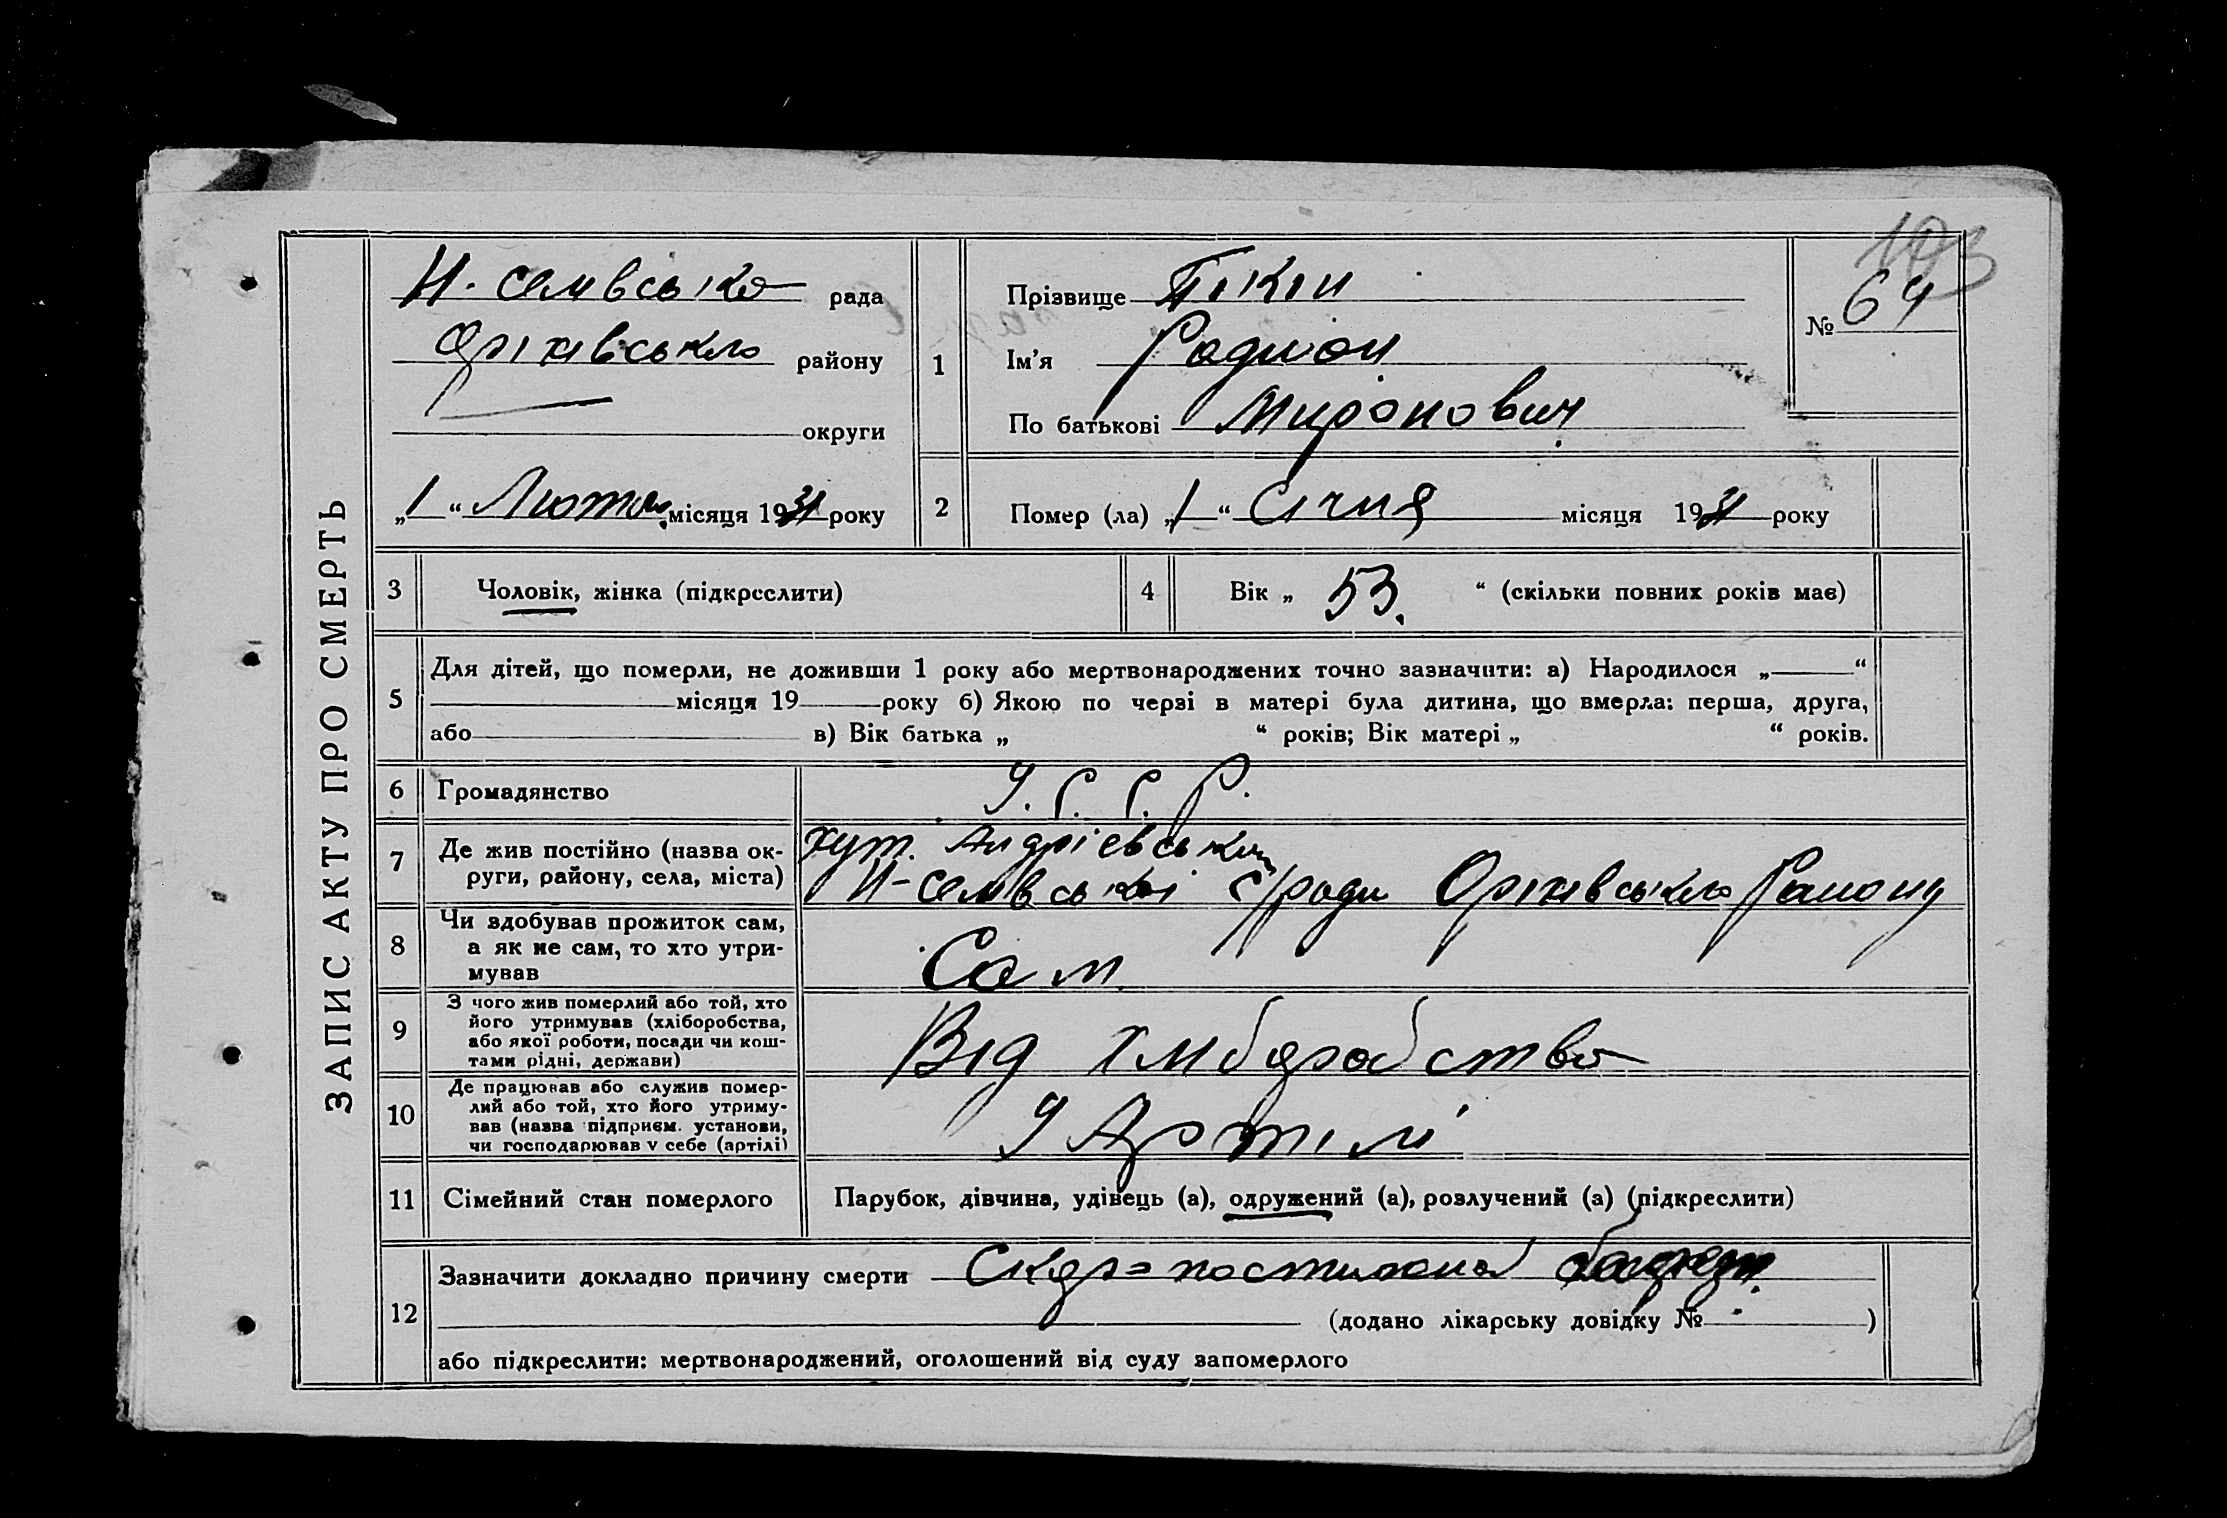 193
ЗАПИС АКТУ ПРО СМЕРТЬ
Н. селивська рада
Оріхівського району
округи
„1“ Лютого місяця 1931 року
1
Прізвище Пікін
Ім'я Родион
По батькові Миронович
№ 64
2 Помер (ла) „1“ Січня місяця 1931 року
3 Чоловік, жінка (підкреслити)
4 Вік „53.“ (скільки повних років має)
5 Для дітей, що померли, не доживши 1 року або мертвонароджених точно зазначити: а) Народилося „ “
місяця 19 року б) Якою по черзі в матері була дитина, що вмерла: перша, друга,
або в) Вік батька „ “ років; Вік матері „ “ років.
6 Громадянство У.С.С.Р.
7 Де жив постійно (назва ок-
руги, району, села, міста)
хут. Андрієвський
Н-селивської с/ради Оріхівського Району
8 Чи здобував прожиток сам,
а як не сам, то хто утри-
мував
Сам
9 З чого жив померлий або той, хто
його утримував (хліборобства,
або якої роботи, посади чи кош-
тами рідні, держави)
Від хліборобства
10 Де працював або служив помер-
лий або той, хто його утриму-
вав (назва підприєм. установи,
чи господарював у себе (артілі)
У Артілі
11 Сімейний стан померлого Парубок, дівчина, удівець (а), одружений (а), розлучений (а) (підкреслити)
12 Зазначити докладно причину смерти Скоро=постижна
(додано лікарську довідку № )
або підкреслити: мертвонароджений, оголошений від суду запомерлого